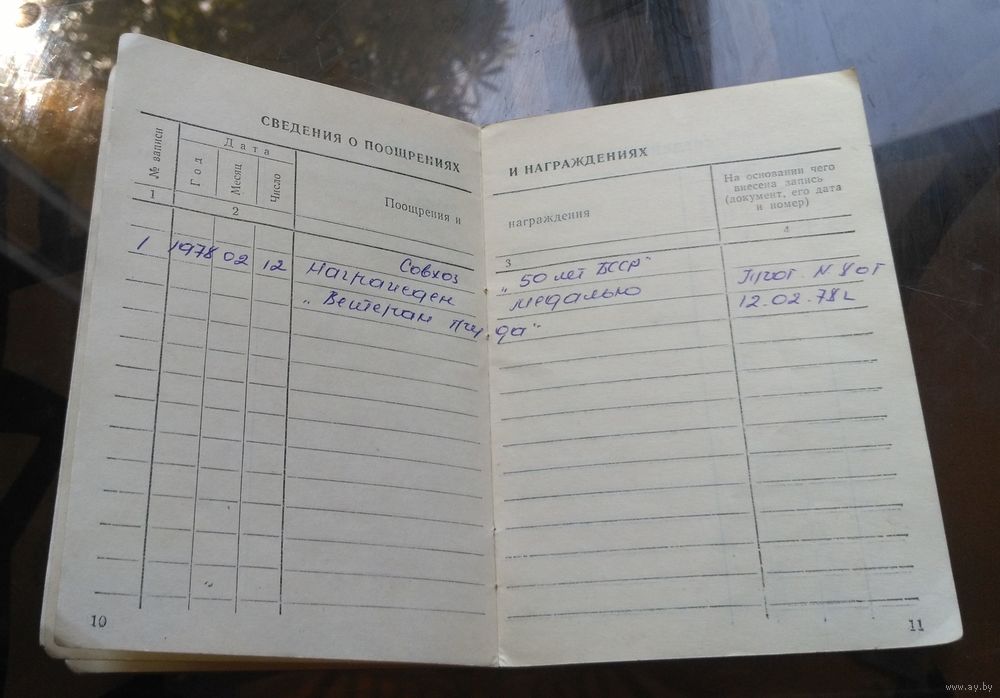 СВЕДЕНИЯ О ПООЩРЕНИЯХ И НАГРАЖДЕНИЯХ
№ записи
Дата
Год
Месяц
Число
Поощрения и награждения
На основании чего
внесена запись
(документ, его дата
и номер)
1
2
3
4
Совхоз „50 лет БССР“
1 1978 02 12 Награжден медалью Прот. N 4 от
„Ветеран труда“ 12.02.78 г
10
11
www.ay.by